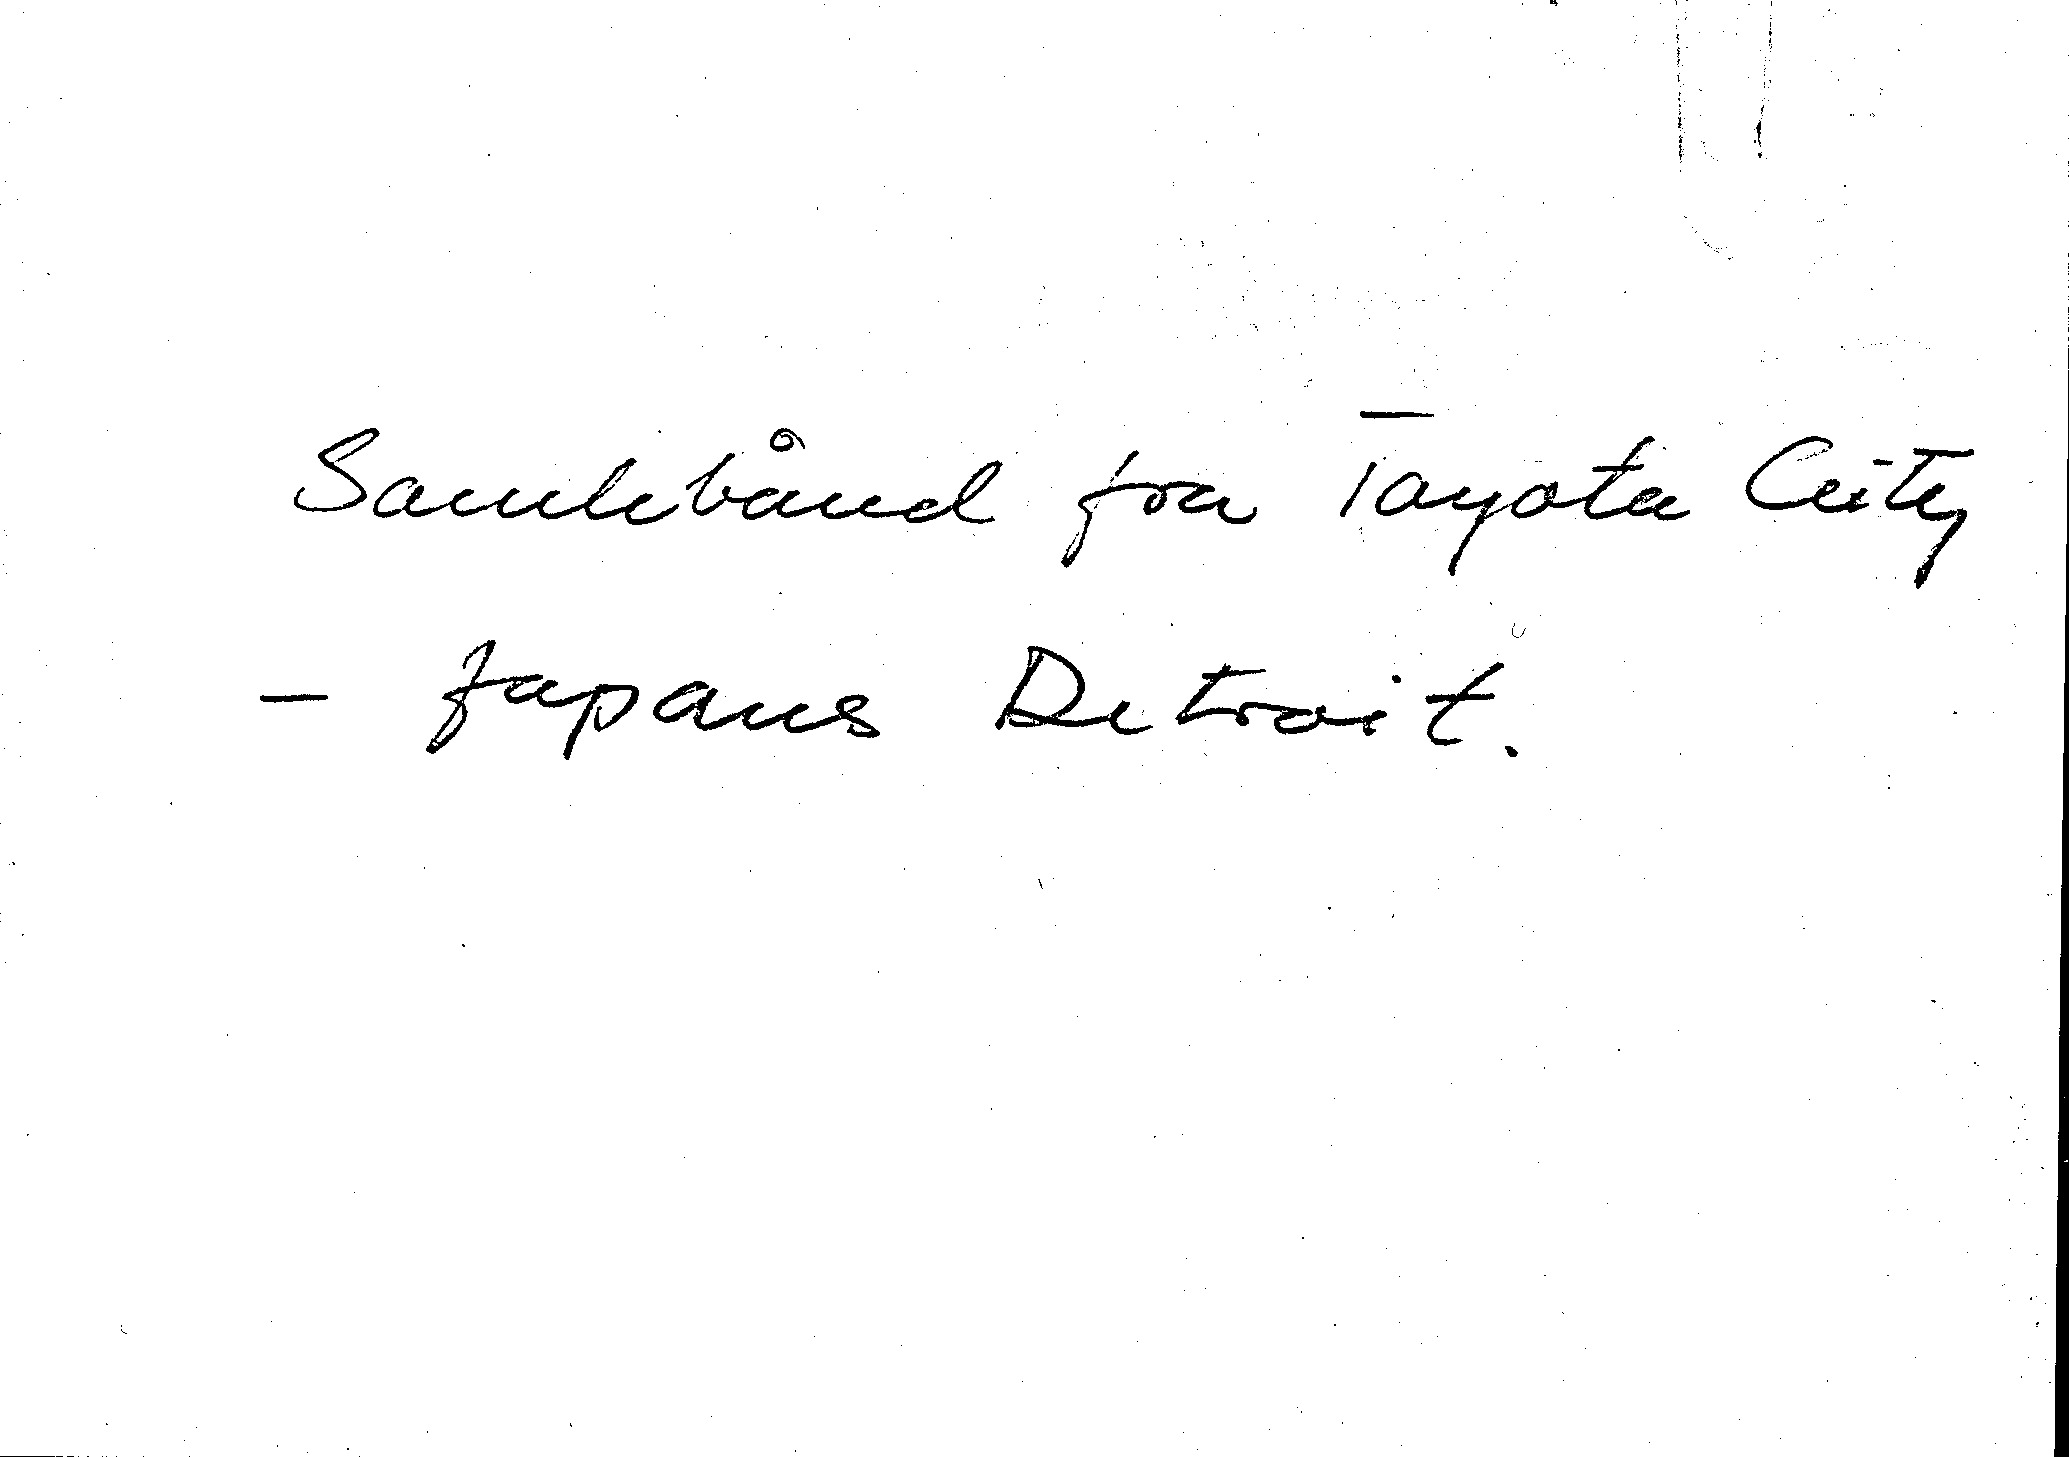 Samlebånd fra Toyota City
- Japans Detroit.